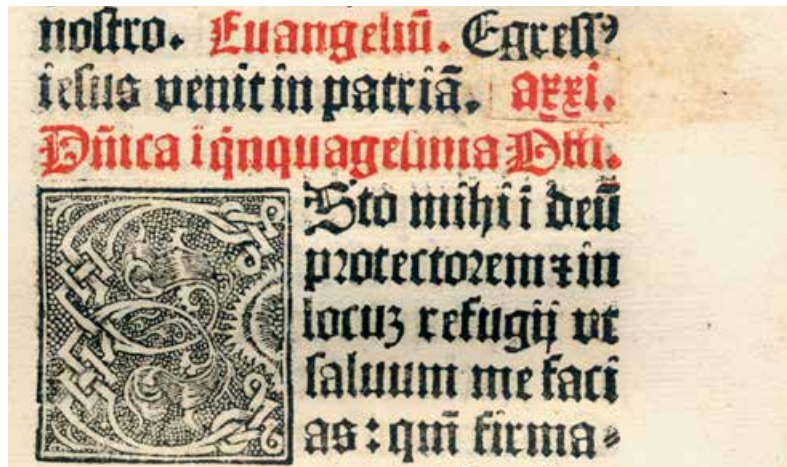 nostro. Euangeliū. Egress⁹
iesus venit in patriā. axxi.
Dn̄ica i qͥnquagesima Offi.
ESto mihi i deū
protectorem ⁊ in
locuꝫ refugij vt
saluum me faci
as : qm̄ firma⸗